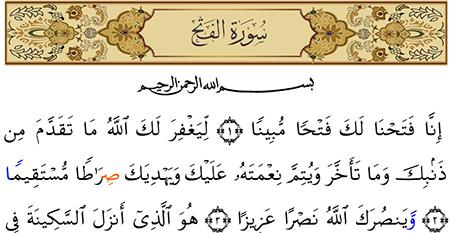 سُورَةُ الفَتْحِ
بسم الله الرحمن الرحيم
إِنَّا فَتَحْنَا لَكَ فَتْحًا مُّبِينًا ﴿١﴾ لِّيَغْفِرَ لَكَ اللَّهُ مَا تَقَدَّمَ مِن
ذَنۢبِكَ وَمَا تَأَخَّرَ وَيُتِمَّ نِعْمَتَهُۥ عَلَيْكَ وَيَهْدِيَكَ صِرَٰطًا مُّسْتَقِيمًا
﴿٢﴾ وَيَنصُرَكَ اللَّهُ نَصْرًا عَزِيزًا ﴿٣﴾ هُوَ الَّذِىٓ أَنزَلَ السَّكِينَةَ فِى